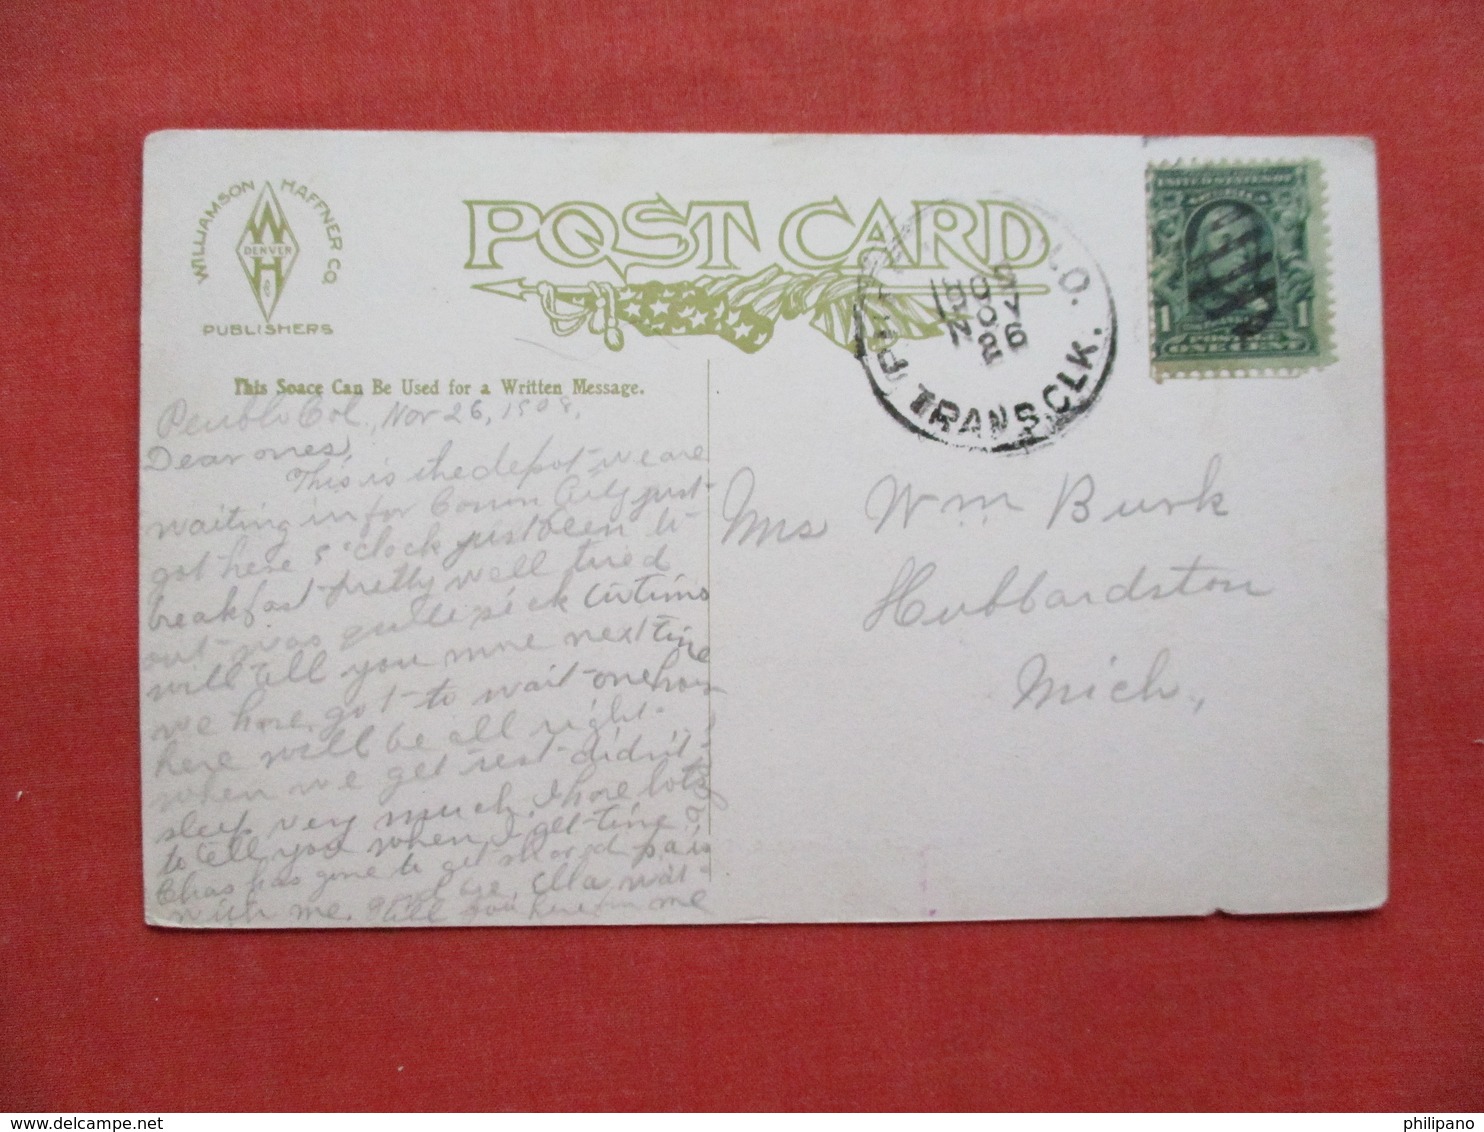 WILLIAMSON HAFFNER CO
W
DENVER
H
PUBLISHERS
POST CARD
This Space Can Be Used for a Written Message.
LO.
NOV 26
TRANS. CLK.
UNITED STATES OF
1 1
POSTAGE
ONE CENT
Peublo Col., Nov 26, 1908,
Dear ones,
This is the depot we are
waiting in for Conon City just
got here 5 o'clock just been to
breakfast pretty well tired
out was quite sick
will tell you more next time
we have got to wait one hour
here will be all right
when we get rest didn't
sleep very much, I have lots
to tell you when I get time
Chas has gone to get
with me. Ella
will you me
Mrs Wm Burk
Hubbardston
Mich.,
philipano
delcampe.net